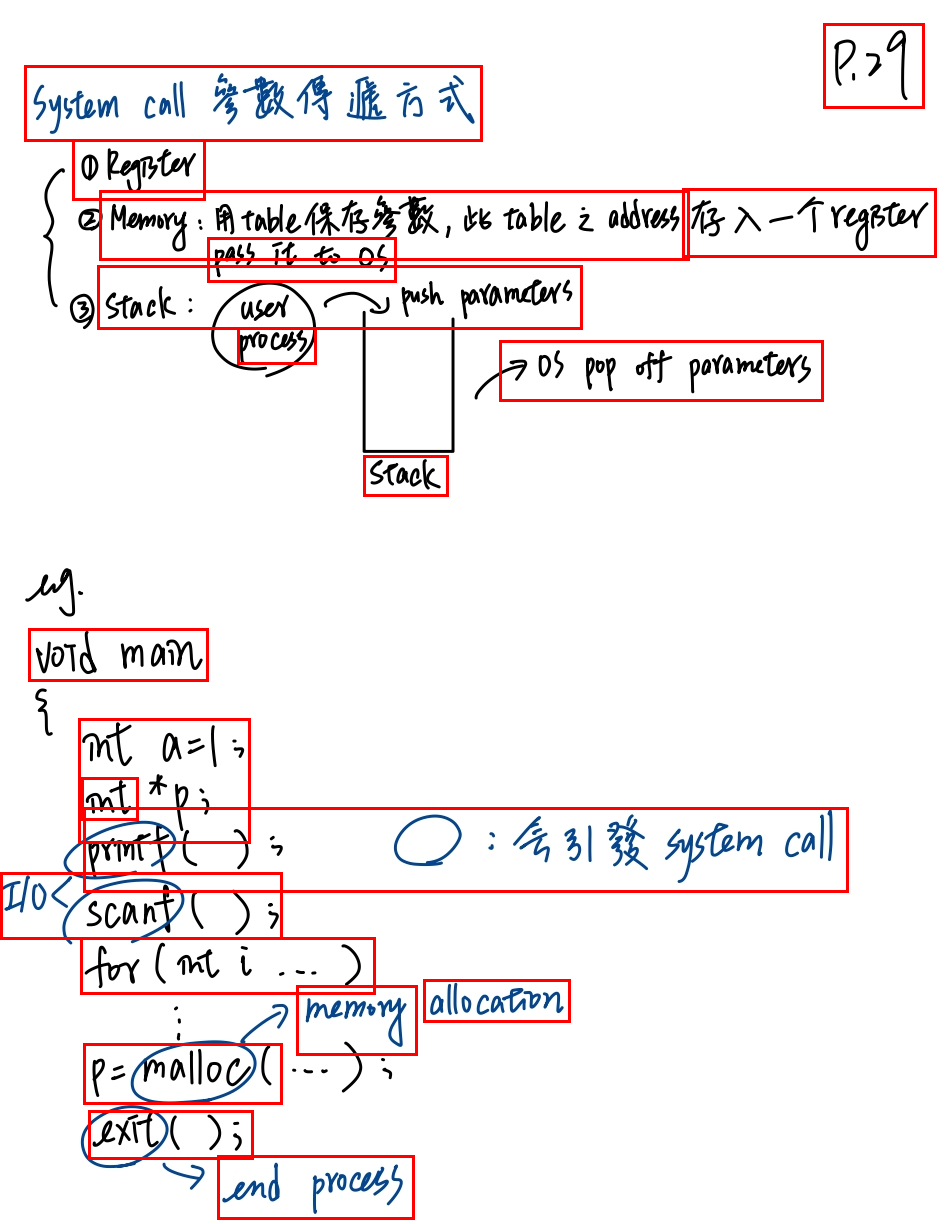 P.29
System call 參數傳遞方式
① Register
② Memory : 用 table 保存參數, 此 table 之 address 存入一个 register
pass it to OS
③ Stack : user process push parameters
OS pop off parameters
Stack
eg.
void main
{
int a=1 ;
int *p ;
printf ( ) ;
○ : 会引發 system call
I/O < scanf ( ) ;
for ( int i ... )
⋮
memory allocation
p = malloc ( ... ) ;
exit ( ) ;
end process